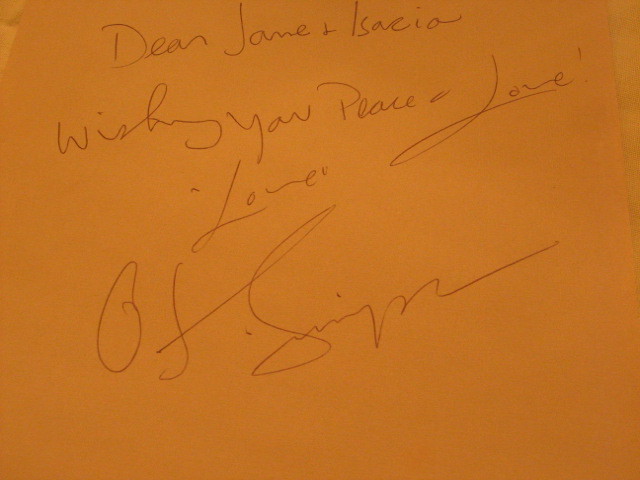 Dear Jane + Isazia
Wishing you Peace & Love!
"Love"
O J Simpson